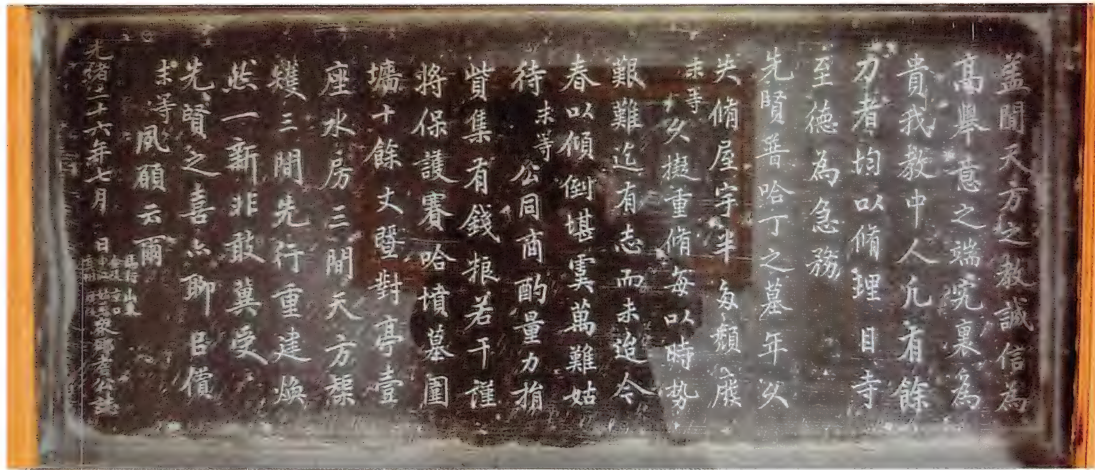 蓋聞天方之教誠信為
高舉意之端究裏為
貴我教中人凢有餘
力者均以脩理目寺
至德為急務
先賢普哈丁之墓年久
失脩屋宇半多頽廢
末等久擬重脩每以時勢
艱難迄有志而未逮今
春以傾倒堪虞萬難姑
待末等公同商酌量力捐
貲集有錢粮若干謹
將保護賽哈墳墓圍
墻十餘丈曁對亭壹
座水房三間天方架
𤩽三間先行重建煥
然一新非敢冀受
先賢之喜亦聊㠯償
末等風願云爾
光緒二十六年七月 日